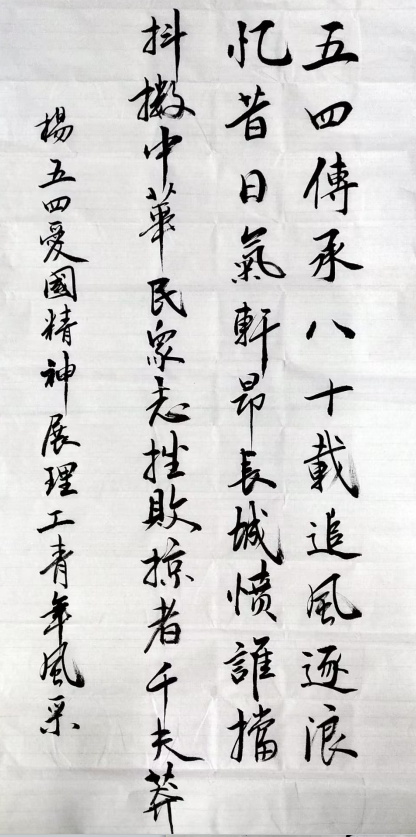 五四傳承八十載追風逐浪
忆昔日氣軒昂長城愤誰擋
抖擞中華民衆志挫敗掠者千夫莽
楊五四愛國精神展理工青年風采